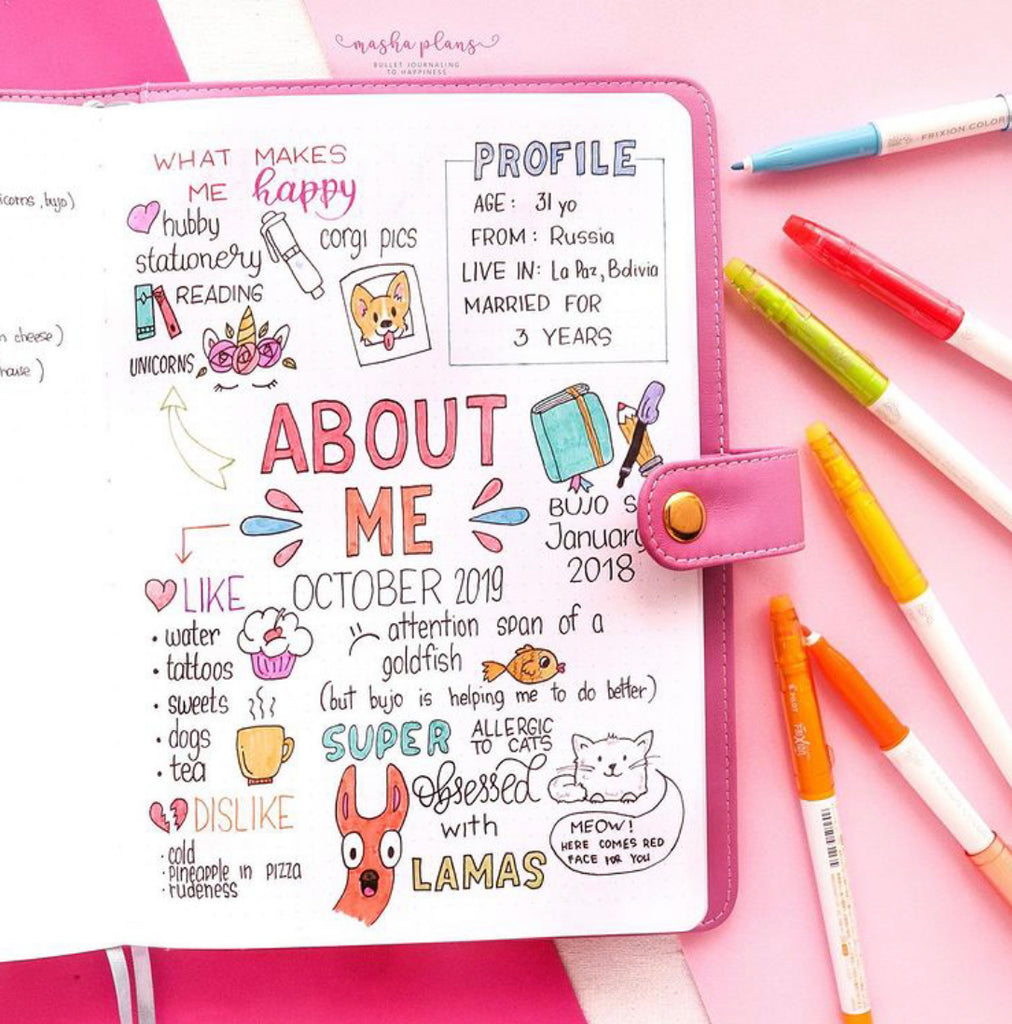 masha plans
BULLET JOURNALING
TO HAPPINESS
icorns, bujo)
n cheese)
WHAT MAKES
ME happy
hubby
stationery
READING
UNICORNS
corgi pics
PROFILE
AGE: 31 yo
FROM: Russia
LIVE IN: La Paz, Bolivia
MARRIED FOR
3 YEARS
ABOUT
ME
BUJO S
January
2018
OCTOBER 2019
LIKE
• water
• tattoos
• sweets
• dogs
• tea
DISLIKE
• cold
• pineapple in pizza
• rudeness
attention span of a
goldfish
(but bujo is helping me to do better)
SUPER
ALLERGIC
TO CATS
obsessed
with
LAMAS
MEOW!
HERE COMES RED
FACE FOR YOU
FRIXION COLOR
PILOT FRIXION